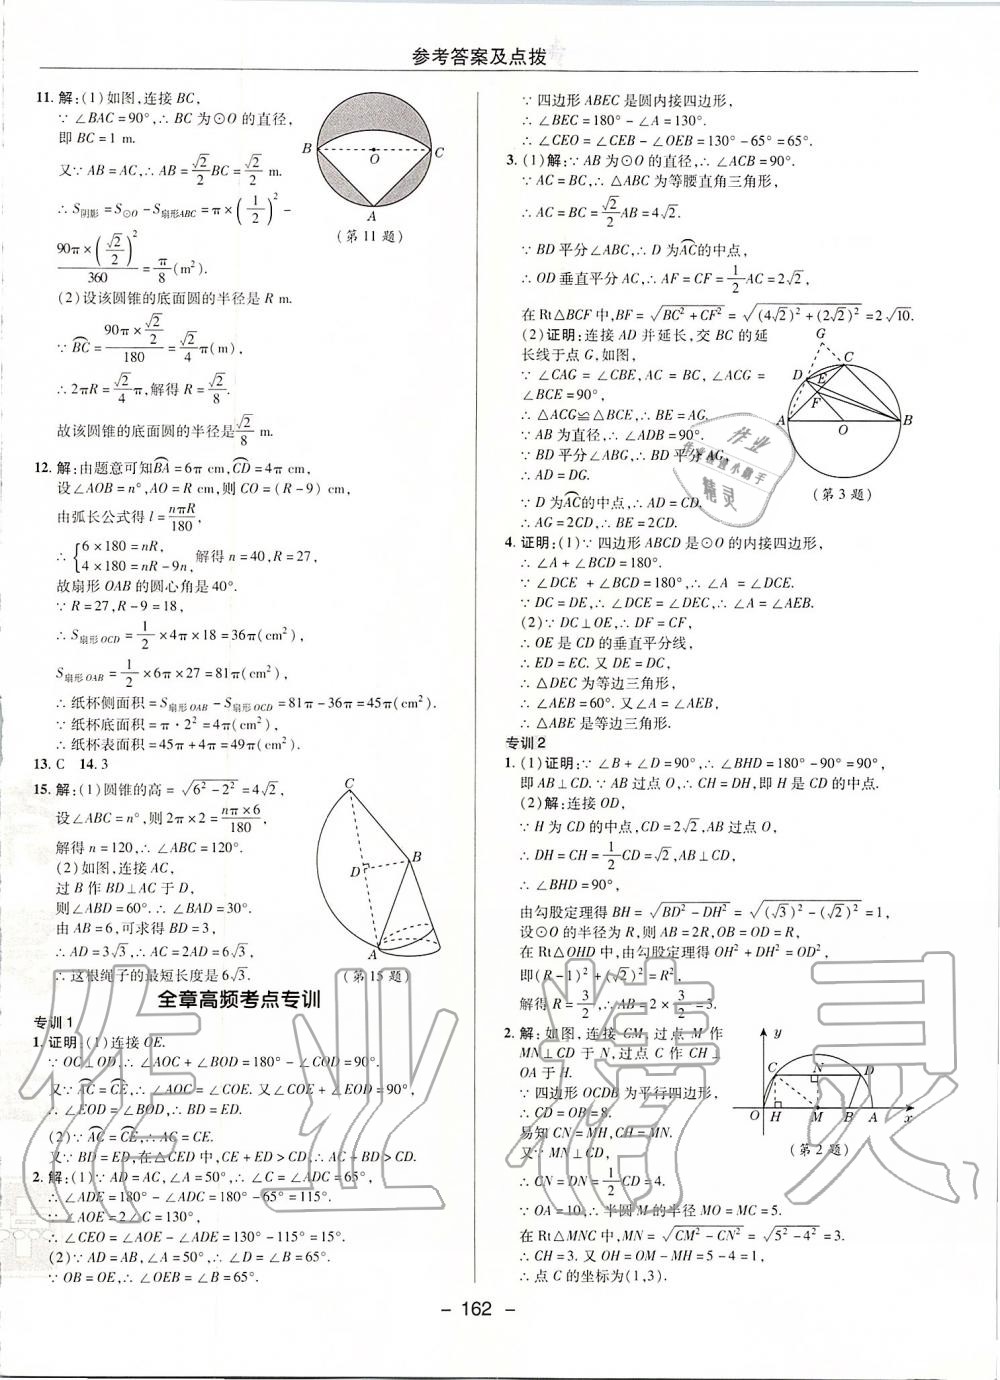 参考答案及点拨
11. 解:(1)如图,连接 BC,
∵ ∠BAC=90°,∴ BC 为⊙O 的直径,
即 BC=1 m.
又∵ AB=AC,∴ AB=√2/2 BC=√2/2 m.
∴ S阴影=S⊙O-S扇形ABC=π×(1/2)²-
90π×(√2/2)²/360=π/8(m²).
(2)设该圆锥的底面圆的半径是 R m.
∵ B͡C=90π×√2/2/180=√2/4π(m),
∴ 2πR=√2/4π,解得 R=√2/8.
故该圆锥的底面圆的半径是√2/8 m.
B O C A
(第 11 题)
12. 解:由题意可知B͡A=6π cm,C͡D=4π cm,
设∠AOB=n°,AO=R cm,则 CO=(R-9) cm,
由弧长公式得 l=nπR/180,
∴ {6×180=nR,
4×180=nR-9n, 解得 n=40,R=27,
故扇形 OAB 的圆心角是 40°.
∵ R=27,R-9=18,
∴ S扇形OCD=1/2×4π×18=36π(cm²),
S扇形OAB=1/2×6π×27=81π(cm²),
∴ 纸杯侧面积=S扇形OAB-S扇形OCD=81π-36π=45π(cm²).
∵ 纸杯底面积=π·2²=4π(cm²),
∴ 纸杯表面积=45π+4π=49π(cm²).
13. C 14. 3
15. 解:(1)圆锥的高=√(6²-2²)=4√2,
设∠ABC=n°,则 2π×2=nπ×6/180,
解得 n=120,∴ ∠ABC=120°.
(2)如图,连接 AC,
过 B 作 BD⊥AC 于 D,
则∠ABD=60°.∴ ∠BAD=30°.
由 AB=6,可求得 BD=3,
∴ AD=3√3,∴ AC=2AD=6√3,
∴ 这根绳子的最短长度是 6√3.
C B D A
(第 15 题)
全章高频考点专训
专训 1
1. 证明:(1)连接 OE.
∵ OC⊥OD,∴ ∠AOC+∠BOD=180°-∠COD=90°.
又∵ A͡C=C͡E,∴ ∠AOC=∠COE. 又∠COE+∠EOD=90°,
∴ ∠EOD=∠BOD,∴ BD=ED.
(2)∵ A͡C=C͡E,∴ AC=CE.
又∵ BD=ED,在△CED 中,CE+ED>CD,∴ AC+BD>CD.
2. 解:(1)∵ AD=AC,∠A=50°,∴ ∠ADC=∠C=65°,
∴ ∠ADE=180°-∠ADC=180°-65°=115°,
∵ ∠AOE=2∠C=130°,
∴ ∠CEO=∠AOE-∠ADE=130°-115°=15°.
(2)∵ AD=AB,∠A=50°,∴ ∠B=∠ADB=65°.
∵ OB=OE,∴ ∠OEB=∠B=65°.
∵ 四边形 ABEC 是圆内接四边形,
∴ ∠BEC=180°-∠A=130°.
∴ ∠CEO=∠CEB-∠OEB=130°-65°=65°.
3. (1)解:∵ AB 为⊙O 的直径,∴ ∠ACB=90°.
∵ AC=BC,∴ △ABC 为等腰直角三角形,
∴ AC=BC=√2/2 AB=4√2.
∵ BD 平分∠ABC,∴ D 为A͡C的中点,
∴ OD 垂直平分 AC,∴ AF=CF=1/2 AC=2√2,
在 Rt△BCF 中,BF=√(BC²+CF²)=√((4√2)²+(2√2)²)=2√10.
(2)证明:连接 AD 并延长,交 BC 的延
长线于点 G,如图,
∵ ∠CAG=∠CBE,AC=BC,∠ACG=
∠BCE=90°,
∴ △ACG≌△BCE,∴ BE=AG.
∵ AB 为直径,∴ ∠ADB=90°.
∵ BD 平分∠ABG,∴ BD 平分 AG,
∴ AD=DG.
∵ D 为A͡C的中点,∴ AD=CD.
∴ AG=2CD,∴ BE=2CD.
G C D E F A O B
(第 3 题)
4. 证明:(1)∵ 四边形 ABCD 是⊙O 的内接四边形,
∴ ∠A+∠BCD=180°.
∵ ∠DCE+∠BCD=180°,∴ ∠A=∠DCE.
∵ DC=DE,∴ ∠DCE=∠DEC,∴ ∠A=∠AEB.
(2)∵ DC⊥OE,∴ DF=CF,
∴ OE 是 CD 的垂直平分线,
∴ ED=EC. 又 DE=DC,
∴ △DEC 为等边三角形,
∴ ∠AEB=60°. 又∠A=∠AEB,
∴ △ABE 是等边三角形.
专训 2
1. (1)证明:∵ ∠B+∠D=90°,∴ ∠BHD=180°-90°=90°.
即 AB⊥CD.∵ AB 过点 O,∴ CH=DH,即 H 是 CD 的中点.
(2)解:连接 OD,
∵ H 为 CD 的中点,CD=2√2,AB 过点 O,
∴ DH=CH=1/2 CD=√2,AB⊥CD,
∴ ∠BHD=90°,
由勾股定理得 BH=√(BD²-DH²)=√((√3)²-(√2)²)=1,
设⊙O 的半径为 R,则 AB=2R,OB=OD=R,
在 Rt△DHO 中,由勾股定理得 OH²+DH²=OD²,
即(R-1)²+(√2)²=R²,
解得 R=3/2,∴ AB=2×3/2=3.
2. 解:如图,连接 CM,过点 M 作
MN⊥CD 于 N,过点 C 作 CH⊥
OA 于 H.
∵ 四边形 OCDB 为平行四边形,
∴ CD=OB=8.
易知 CN=MH,CH=MN.
又∵ MN⊥CD,
∴ CN=DN=1/2 CD=4.
∵ OA=10,∴ 半圆 M 的半径 MO=MC=5.
在 Rt△MNC 中,MN=√(CM²-CN²)=√(5²-4²)=3.
∴ CH=3. 又 OH=OM-MH=5-4=1,
∴ 点 C 的坐标为(1,3).
y C N D O H M B A x
(第 2 题)
- 162 -
作业精灵